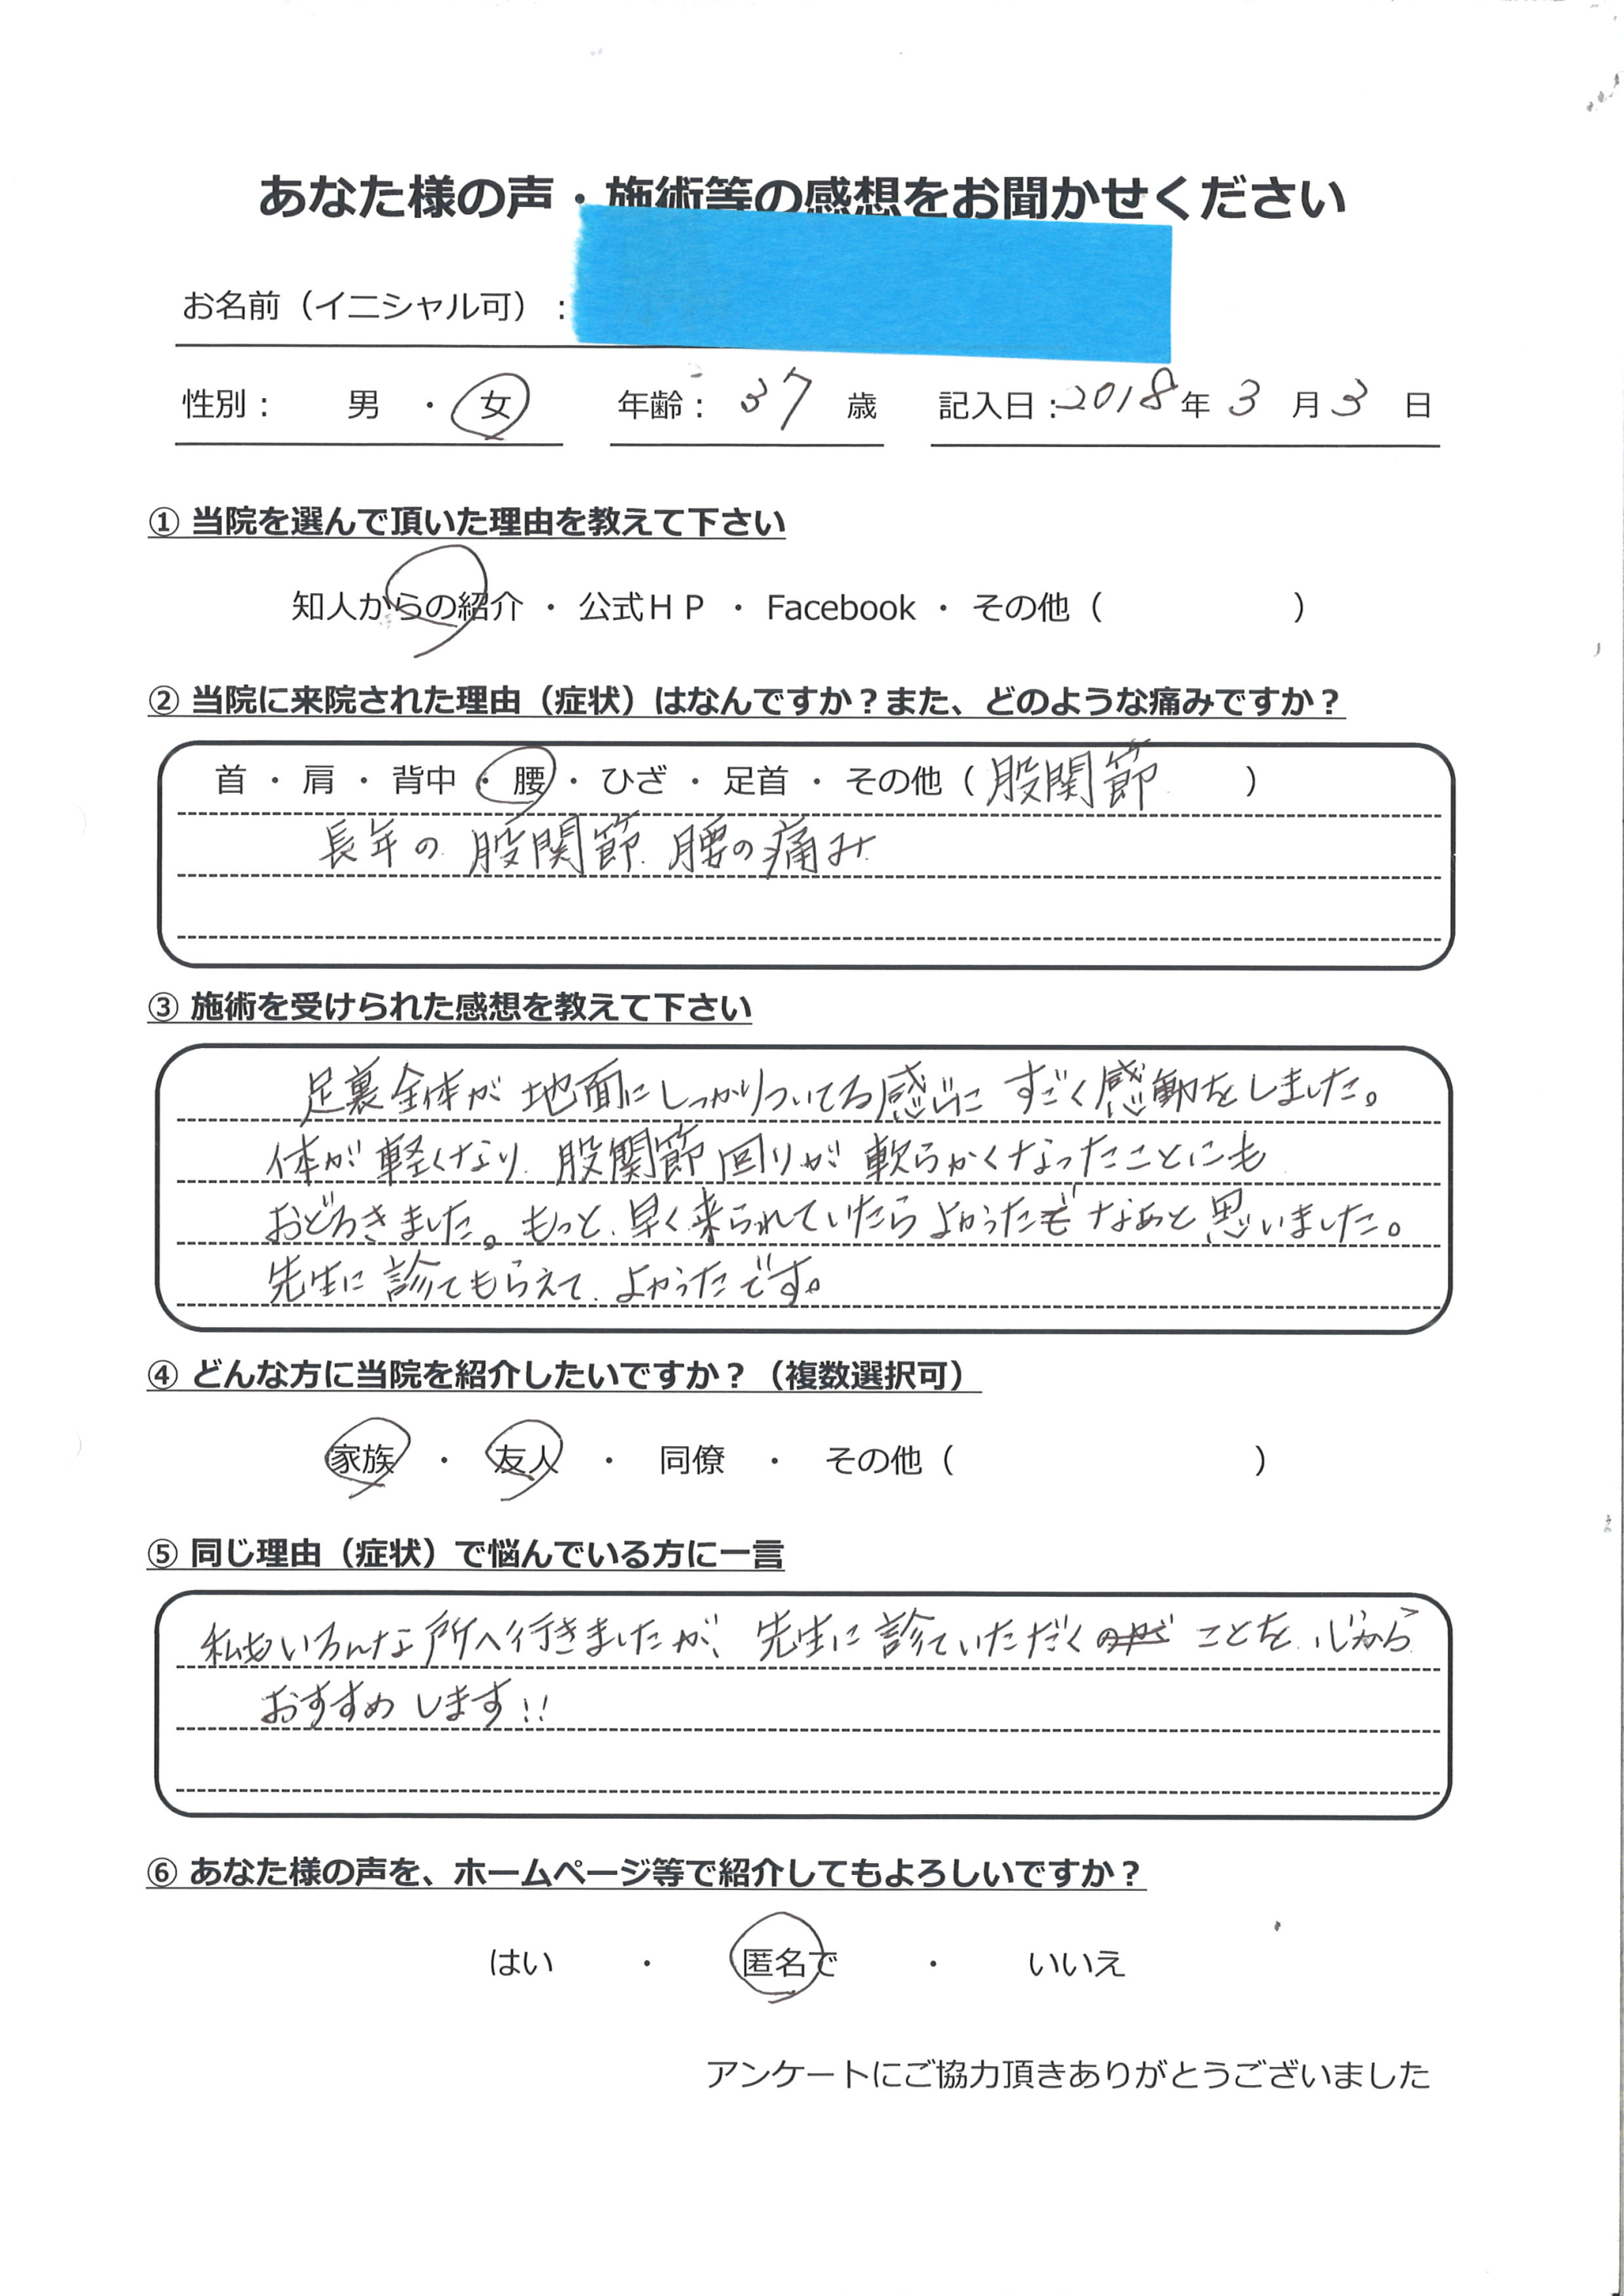 あなた様の声・施術等の感想をお聞かせください
お名前（イニシャル可）：
性別： 男 ・ 女 年齢： 37 歳 記入日：2018年 3 月 3 日
① 当院を選んで頂いた理由を教えて下さい
知人からの紹介 ・ 公式ＨＰ ・ Facebook ・ その他（ ）
② 当院に来院された理由（症状）はなんですか？また、どのような痛みですか？
首 ・ 肩 ・ 背中 ・ 腰 ・ ひざ ・ 足首 ・ その他（ 股関節 ）
長年の 股関節 腰の痛み
③ 施術を受けられた感想を教えて下さい
足裏全体が 地面にしっかりついてる感じに すごく感動をしました。
体が 軽くなり 股関節回りが 軟らかくなったことにも
おどろきました。もっと 早く来られていたら よかった なあと 思いました。
先生に 診てもらえて よかったです。
④ どんな方に当院を紹介したいですか？（複数選択可）
家族 ・ 友人 ・ 同僚 ・ その他（ ）
⑤ 同じ理由（症状）で悩んでいる方に一言
私もいろんな所へ行きましたが、先生に 診ていただく ことを 心から
おすすめします!!
⑥ あなた様の声を、ホームページ等で紹介してもよろしいですか？
はい ・ 匿名で ・ いいえ
アンケートにご協力頂きありがとうございました